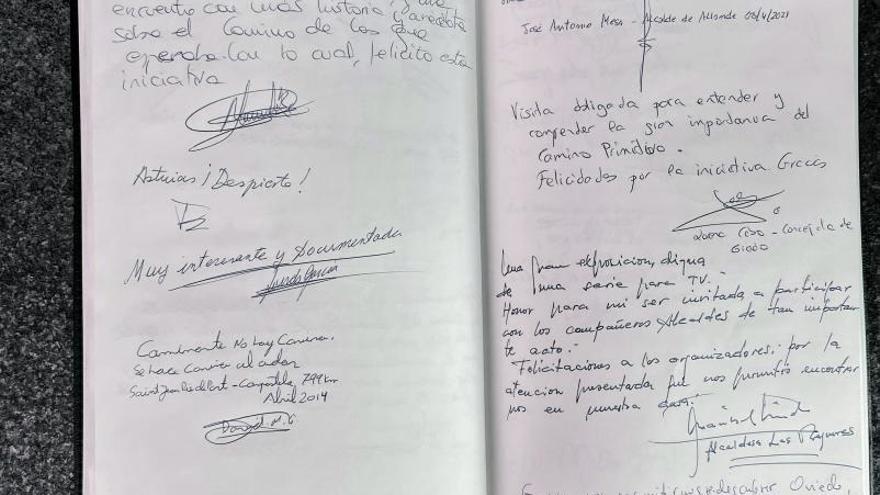 encuentro con más historia y
sobre el Camino de los que
esperaba. Con lo cual, felicito esta
iniciativa
Asturias ¡Despierta!
Muy interesante y Documentada
Caminante No hay Camino.
Se hace Camino al andar
Saint Jean Pied de Port - Compostela 799 km
Abril 2014
José Antonio Mesa - Alcalde de Allande 08/4/2021
Visita obligada para entender y
comprender la gran importancia del
Camino Primitivo.
Felicidades por la iniciativa Gracias
- Concejala de
Una gran exposicion, digna
de una serie para TV.
Honor para mi ser invitada a participar
con los compañeros Alcaldes de tan importan
te acto.
Felicitaciones a los organizadores. por la
atencion presentada que nos permitio encontrar
nos en nuestra casa.
Alcaldesa Las Regueras
redescubrir Oviedo,